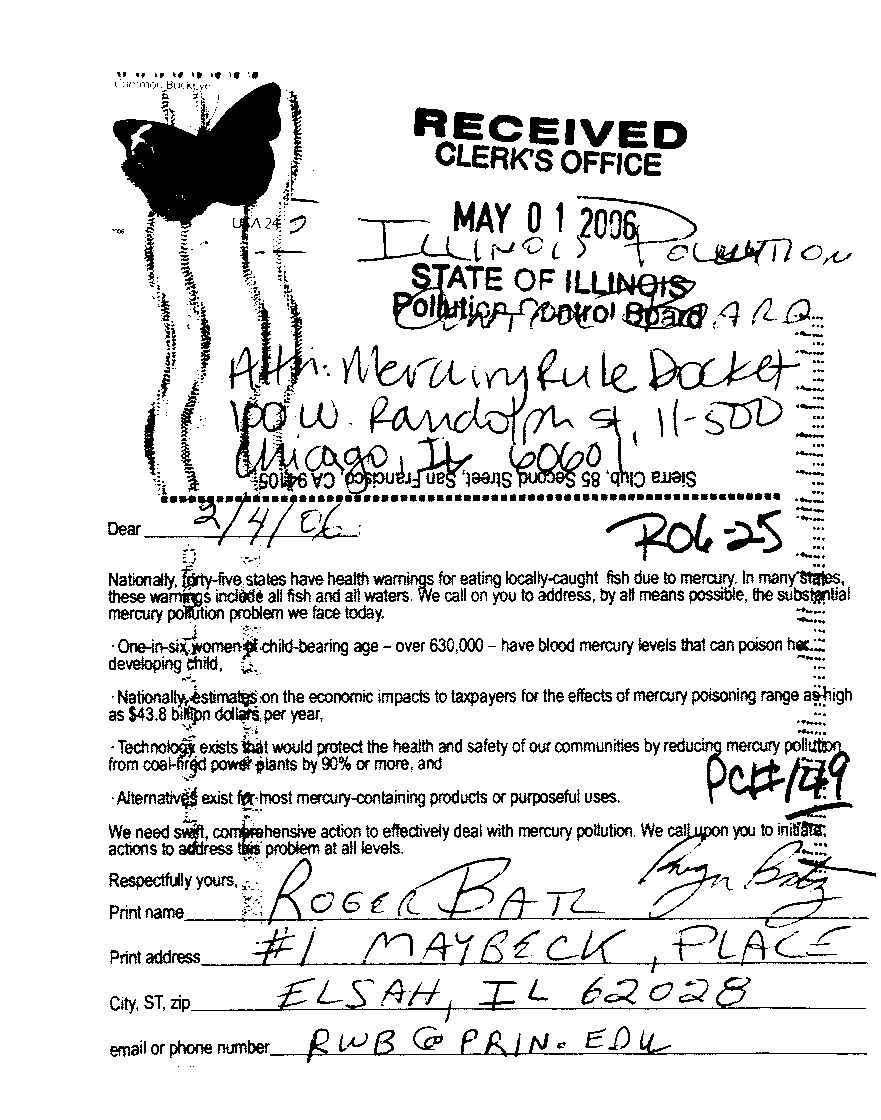 Common Buckeye
USA 24
RECEIVED
CLERK'S OFFICE
MAY 01 2006
STATE OF ILLINOIS
Pollution Control Board
ILLINOIS POLLUTION
CONTROL BOARD
Attn: Mercury Rule Docket
100 W. Randolph St, 11-500
Chicago, IL 60601
Sierra Club, 85 Second Street, San Francisco, CA 94105
Dear 2/4/06
R06-25
Nationally, forty-five states have health warnings for eating locally-caught fish due to mercury. In many states,
these warnings include all fish and all waters. We call on you to address, by all means possible, the substantial
mercury pollution problem we face today.
· One-in-six women of child-bearing age – over 630,000 – have blood mercury levels that can poison her
developing child,
· Nationally, estimates on the economic impacts to taxpayers for the effects of mercury poisoning range as high
as $43.8 billion dollars per year,
· Technology exists that would protect the health and safety of our communities by reducing mercury pollution
from coal-fired power plants by 90% or more, and
PC#149
· Alternatives exist for most mercury-containing products or purposeful uses.
We need swift, comprehensive action to effectively deal with mercury pollution. We call upon you to initiate
actions to address this problem at all levels.
Respectfully yours,
Print name ROGER BATZ Roger Batz
Print address #1 MAYBECK, PLACE
City, ST, zip ELSAH, IL 62028
email or phone number RWB@PRIN.EDU